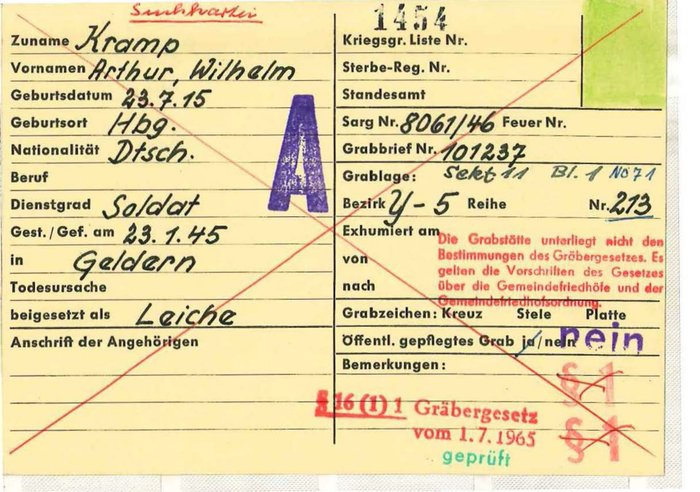 Suchkartei
1454
Zuname Kramp
Vornamen Arthur, Wilhelm
Geburtsdatum 23.7.15
Geburtsort Hbg.
Nationalität Dtsch.
Beruf
Dienstgrad Soldat
Gest./Gef. am 23.1.45
in Geldern
Todesursache
beigesetzt als Leiche
Anschrift der Angehörigen
A
Kriegsgr. Liste Nr.
Sterbe-Reg. Nr.
Standesamt
Sarg Nr. 8061/46 Feuer Nr.
Grabbrief Nr. 101237
Grablage: Sekt 11 Bl. 1 No 71
Bezirk Y-5 Reihe Nr. 213
Exhumiert am
von
nach
Die Grabstätte unterliegt nicht den
Bestimmungen des Gräbergesetzes. Es
gelten die Vorschriften des Gesetzes
über die Gemeindefriedhöfe und der
Gemeindefriedhofsordnung.
Grabzeichen: Kreuz Stele Platte
Öffentl. gepflegtes Grab ja/nein nein
Bemerkungen:
§ 1
§ 16 (1) 1 Gräbergesetz
vom 1.7.1965
§ 1
geprüft